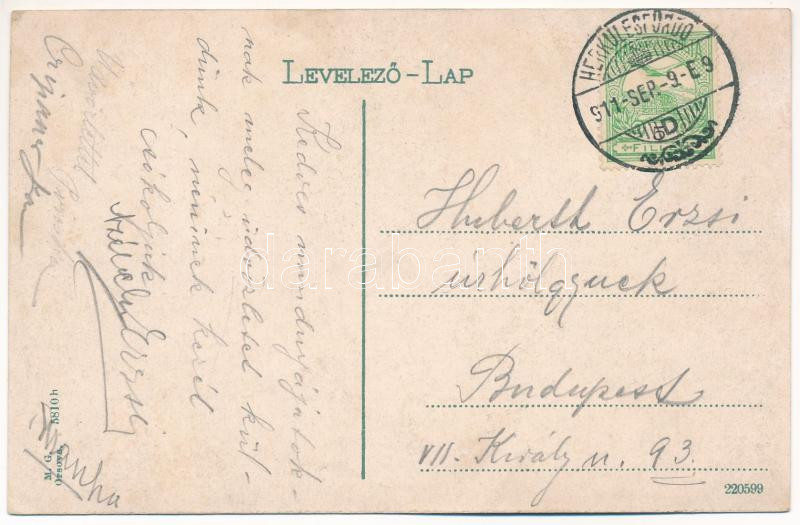 LEVELEZŐ-LAP
HERKULESFÜRDŐ
911-SEP.-9-E9
D
FILL
Kedves mindnyájatok-
nak meleg üdvözletet kül-
dünk, néninek kezét
csókoljuk
Erzsi
Üdvözlettel
Huberth Erzsi
úrhölgynek
Budapest
VII. Király u. 93.
M. G. 5810 h
Orsova.
220599
darabanth